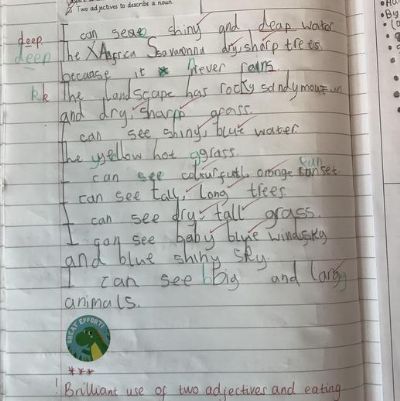 Two adjectives to describe a noun.
deep I can see shiny and deap water
deep The Africa Savanna dry, sharp trees.
because it never rains
the landscape has rocky sandy
and dry, sharp grass.
I can see shiny, blue water
the yellow hot grass
I can see colourful, orange sunset
I can see tall, long trees
I can see dry, tall grass.
I can see baby blue
and blue shiny sky
I can see big and
animals.
GREAT EFFORT!
Brilliant use of two adjectives and eating